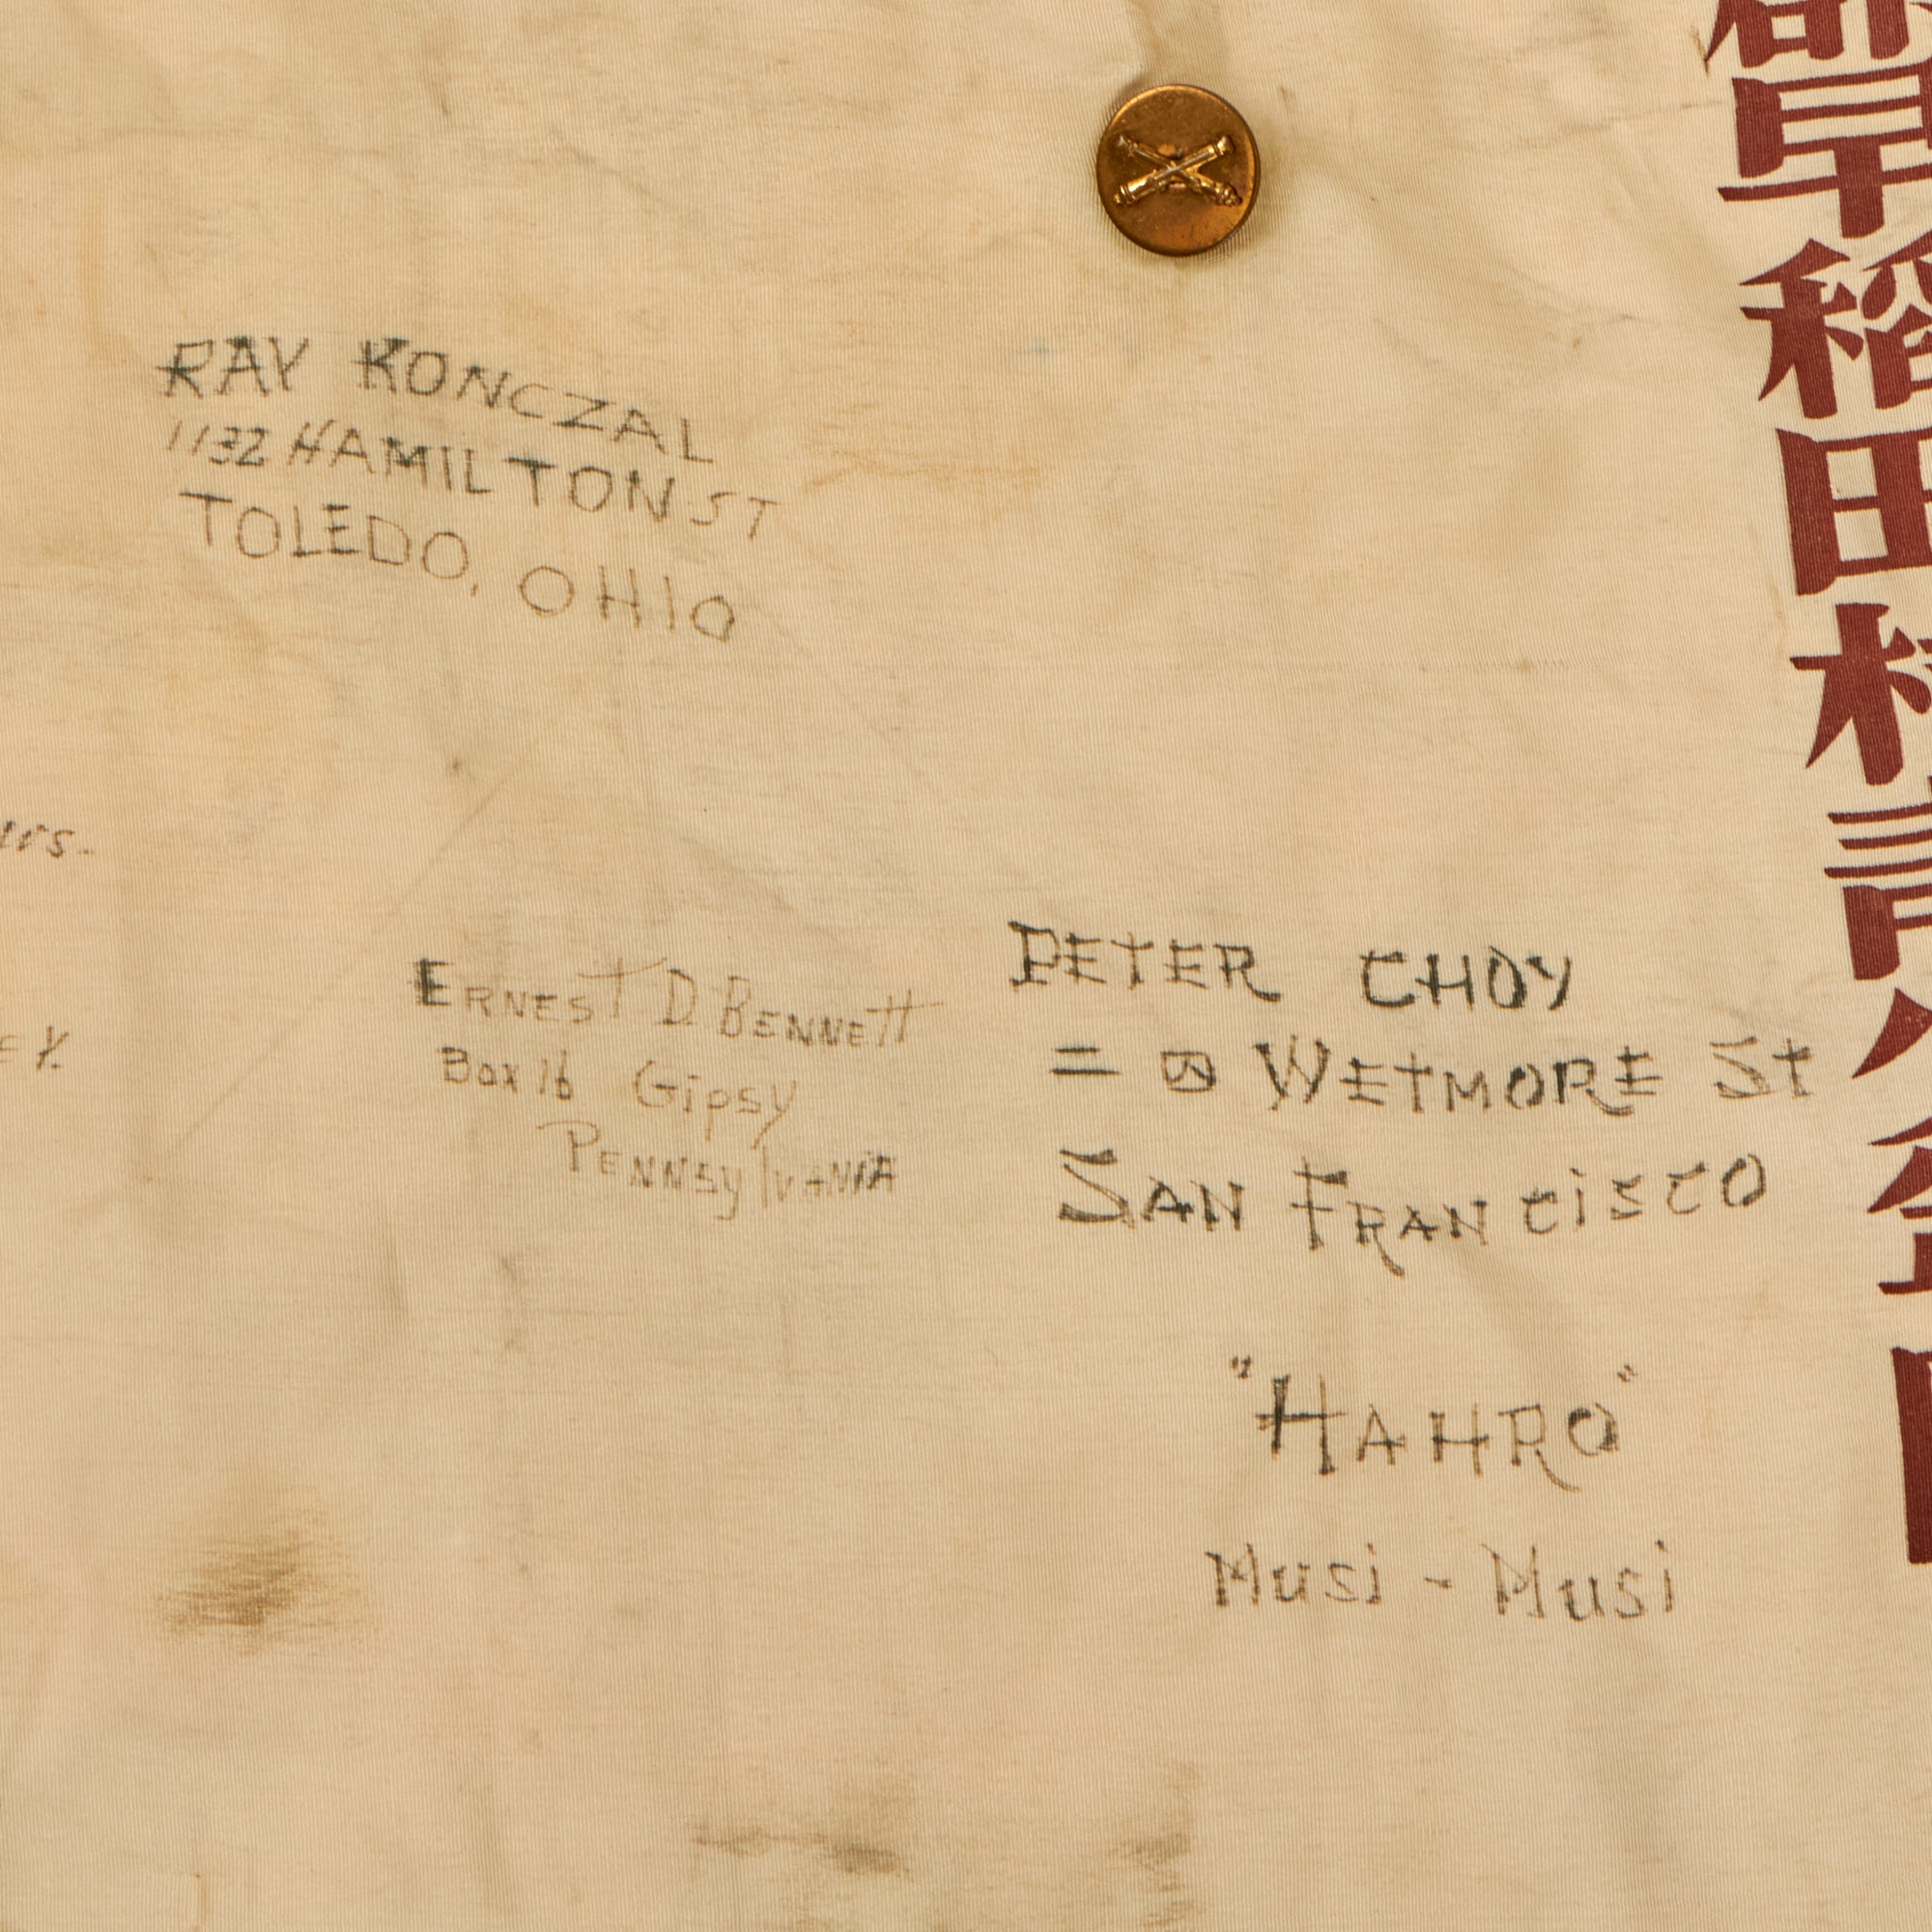 RAY KONCZAL
1132 HAMILTON ST
TOLEDO, OHIO
ERNEST D. BENNETT
Box 16 Gipsy
PENNSylVANIA
PETER CHOY
= 四 WETMORE St
SAN FRANCISCO
"HAHRO"
Musi - Musi
早稲田